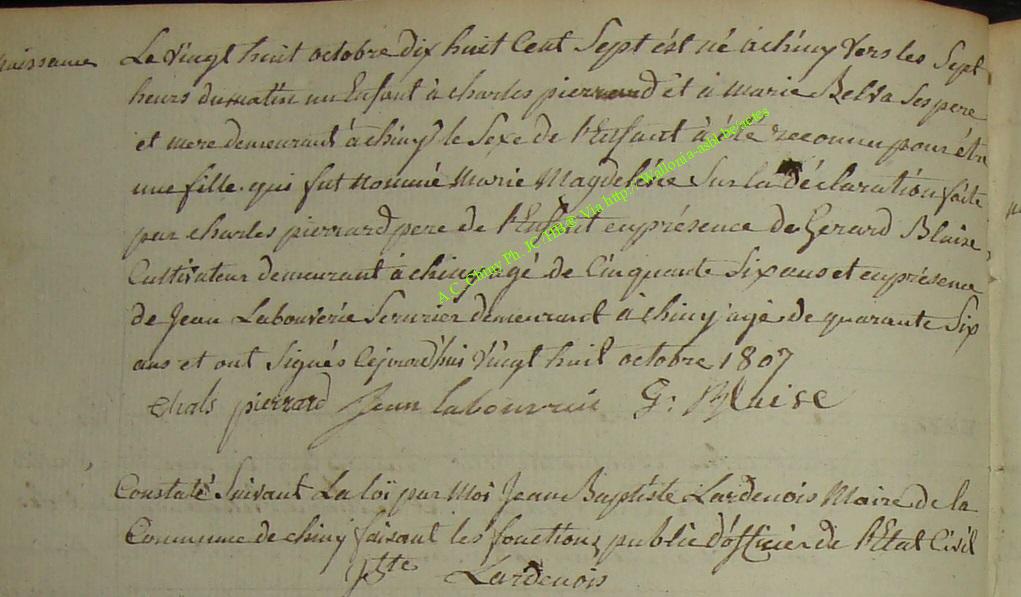 naissance
Le vingt huit octobre dix huit Cent Sept est né à chiny vers les Sept
heurs du matin un Enfant à charles pierrard et à marie Belva Ses pere
et mere demeurant à chiny le Sexe de l'Enfant à éte reconnu pour étre
une fille qui fut nommé marie Magdeleine Sur la déclaration faite
par charles pierrard pere de l'Enfant en présence de Gerard Blaise
Cultivateur demeurant à chiny agé de Cinquante Six ans et en présence
de Jean Labouverie Serurier demeurant à chiny agé de quarante Six
ans et ont Signés Cejourd'hui vingt huit octobre 1807
chals pierrard Jean labouverie G: Blaise
Constaté Suivant La loï par Moi Jean Baptiste Lardenois Maire de la
Commune de chiny faisant les fonctions public d'officier de l'Etat Civil
JBte Lardenois
A.C. Chiny Ph. JC HB © Via http://Wallonia-asbl.be/actes